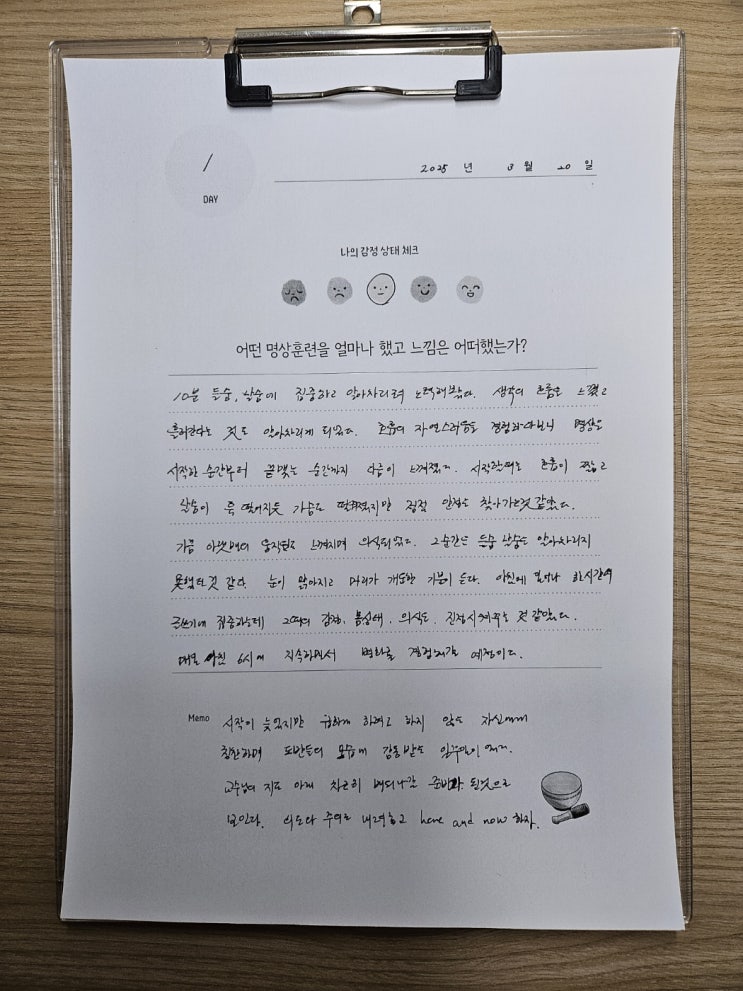 /
DAY
2025 년 3 월 20 일
나의 감정 상태 체크
어떤 명상훈련을 얼마나 했고 느낌은 어떠했는가?
10분 들숨, 날숨에 집중하고 알아차리려 노력해봤다. 생각의 흐름을 느꼈고
흘러간다는 것도 알아차리게 되었다. 호흡의 자연스러움을 경험하다보니 명상을
시작한 순간부터 끝맺는 순간까지 다름이 느껴졌다. 시작할때는 호흡이 짧고
날숨이 뚝 떨어지듯 가슴도 점점 안정을 찾아가는것 같았다.
가끔 아랫배의 움직임도 느껴지며 의식되었다. 그순간은 들숨 날숨도 알아차리지
못했던것 같다. 눈이 맑아지고 머리가 개운한 기분이 든다. 아침에 일어나 한시간여
글쓰기에 집중하는데 그때의 감정, 몸상태, 의식도 진정시켜주는 것 같았다.
매일 아침 6시에 지속하면서 변화를 경험해갈 예정이다.
Memo
시작이 늦었지만 급하게 하려고 하지 않는 자신에게
칭찬하며 도반들의 모습에 감동받는 일주일이었다.
교수님의 지도 아래 차근히 배워나갈 준비가 된것으로
보인다. 의도와 주의를 내려놓고 here and now 하자.